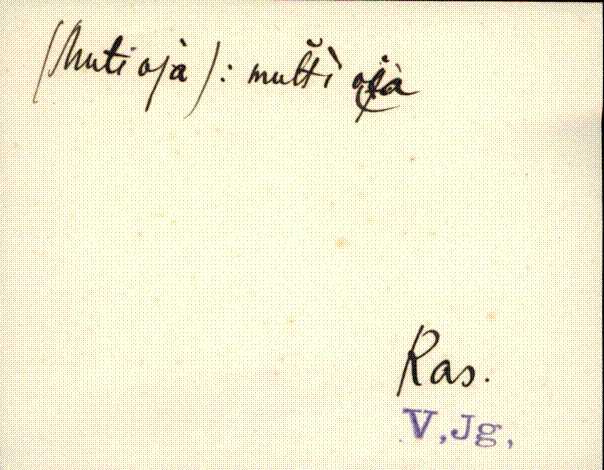 (Muti ojà): multì ojà
Ras.
V,Jg,